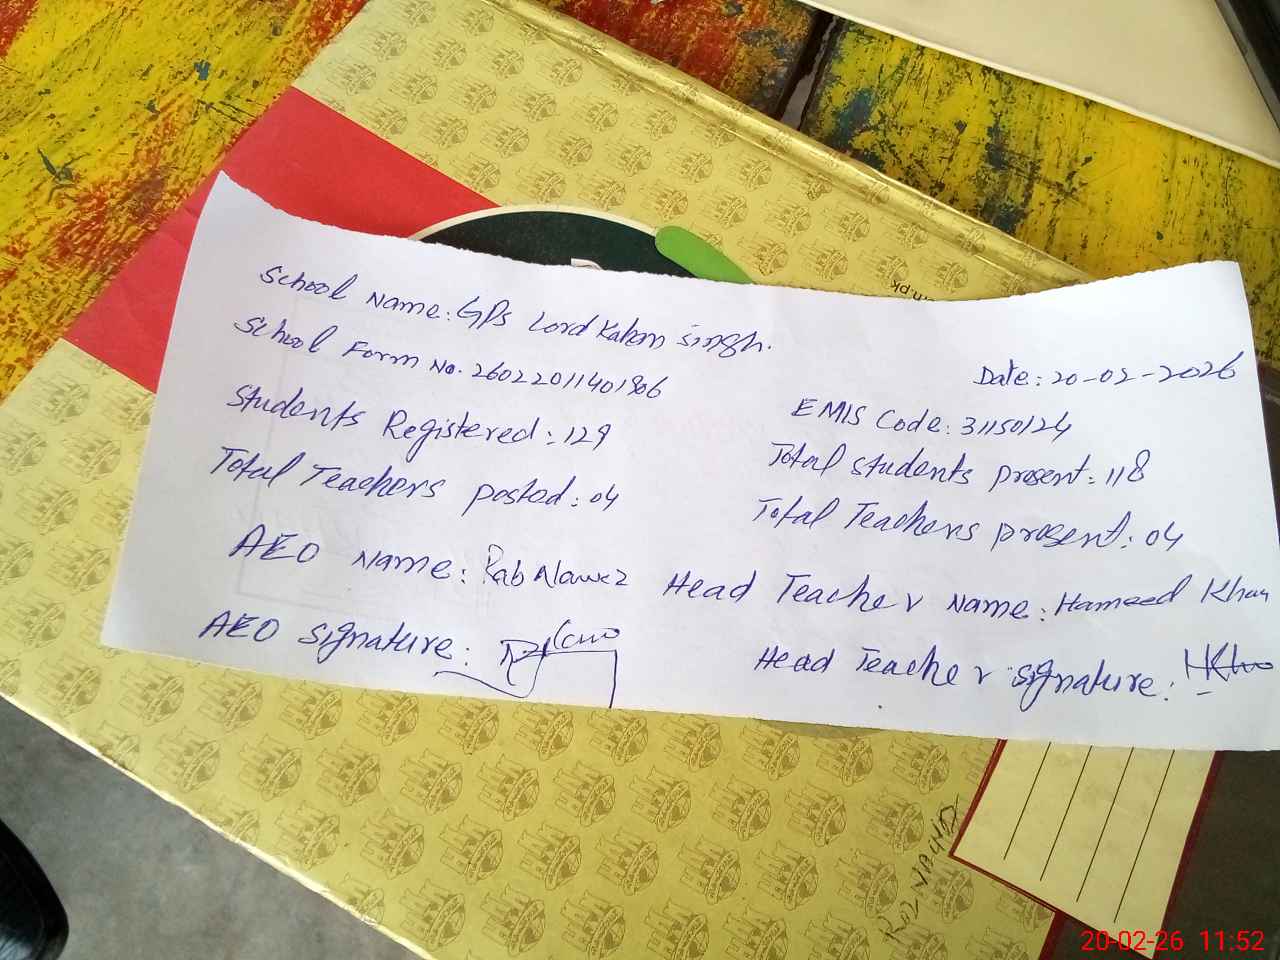 School Name: GPS Lord Kahan Singh.
School Form No. 26022011401806
Date: 20-02-2026
Students Registered: 129
EMIS Code: 31150124
Total Teachers posted: 04
Total students present: 118
Total Teachers present: 04
AEO Name: Rab Nawaz
Head Teacher Name: Hameed Khan
AEO Signature:
Head Teacher Signature: HKhan
20-02-26 11:52